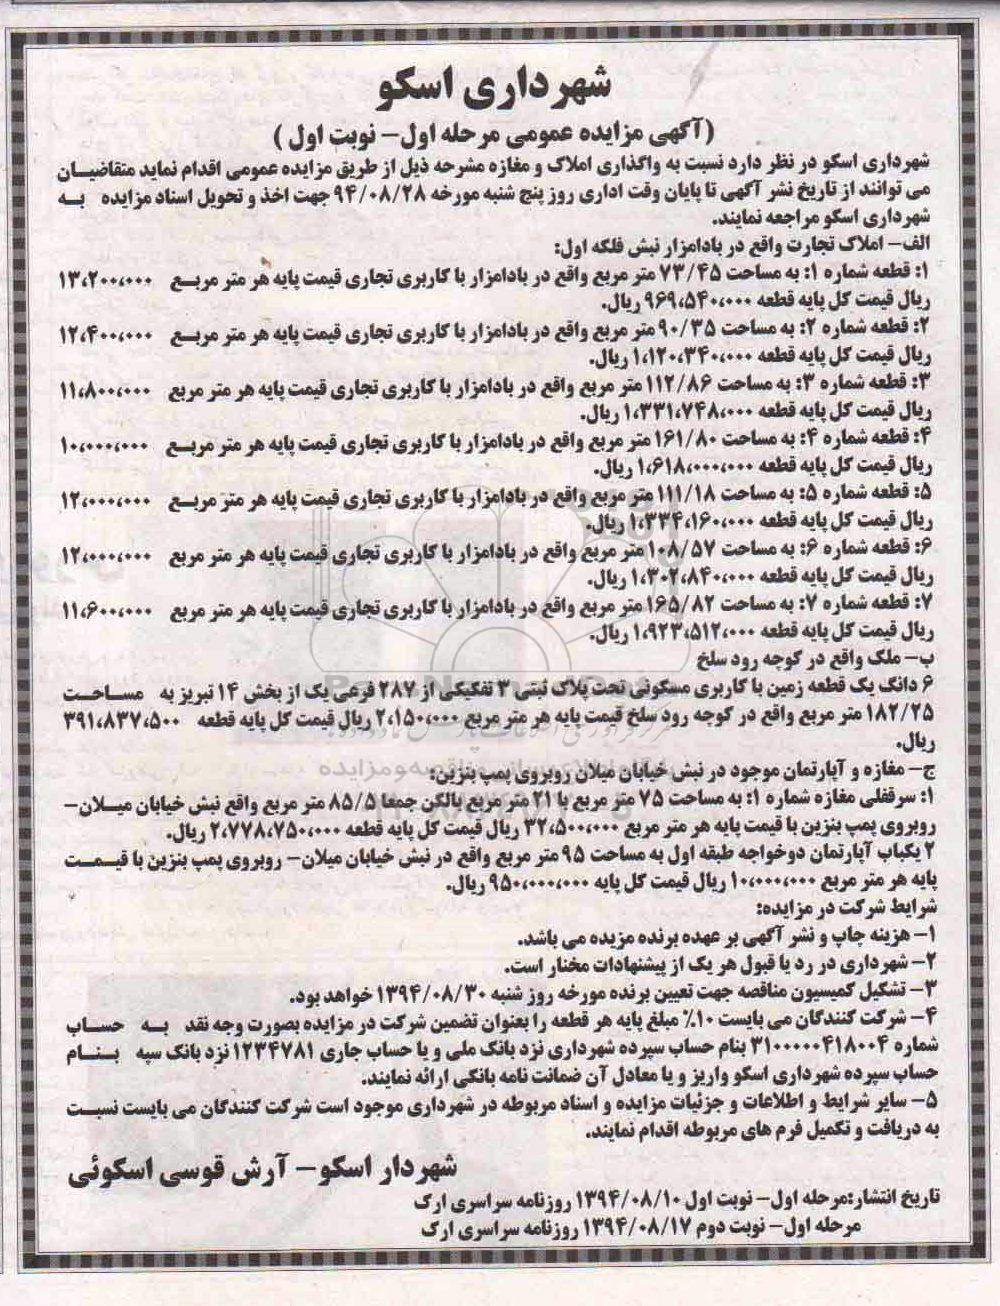 شهرداری اسکو
(آگهی مزایده عمومی مرحله اول- نوبت اول )
شهرداری اسکو در نظر دارد نسبت به واگذاری املاک و مغازه مشرحه ذیل از طریق مزایده عمومی اقدام نماید متقاضیان
می توانند از تاریخ نشر آگهی تا پایان وقت اداری روز پنج شنبه مورخه ۹۴/۰۸/۲۸ جهت اخذ و تحویل اسناد مزایده به
شهرداری اسکو مراجعه نمایند.
الف- املاک تجارت واقع در بادامزار نبش فلکه اول:
۱: قطعه شماره ۱: به مساحت ۷۳/۴۵ متر مربع واقع در بادامزار با کاربری تجاری قیمت پایه هر متر مربع ۱۳،۲۰۰،۰۰۰
ریال قیمت کل پایه قطعه ۹۶۹،۵۴۰،۰۰۰ ریال.
۲: قطعه شماره ۲: به مساحت ۹۰/۳۵ متر مربع واقع در بادامزار با کاربری تجاری قیمت پایه هر متر مربع ۱۲،۴۰۰،۰۰۰
ریال قیمت کل پایه قطعه ۱،۱۲۰،۳۴۰،۰۰۰ ریال.
۳: قطعه شماره ۳: به مساحت ۱۱۲/۸۶ متر مربع واقع در بادامزار با کاربری تجاری قیمت پایه هر متر مربع ۱۱،۸۰۰،۰۰۰
ریال قیمت کل پایه قطعه ۱،۳۳۱،۷۴۸،۰۰۰ ریال.
۴: قطعه شماره ۴: به مساحت ۱۶۱/۸۰ متر مربع واقع در بادامزار با کاربری تجاری قیمت پایه هر متر مربع ۱۰،۰۰۰،۰۰۰
ریال قیمت کل پایه قطعه ۱،۶۱۸،۰۰۰،۰۰۰ ریال.
۵: قطعه شماره ۵: به مساحت ۱۱۱/۱۸ متر مربع واقع در بادامزار با کاربری تجاری قیمت پایه هر متر مربع ۱۲،۰۰۰،۰۰۰
ریال قیمت کل پایه قطعه ۱،۳۳۴،۱۶۰،۰۰۰ ریال.
۶: قطعه شماره ۶: به مساحت ۱۰۸/۵۷ متر مربع واقع در بادامزار با کاربری تجاری قیمت پایه هر متر مربع ۱۲،۰۰۰،۰۰۰
ریال قیمت کل پایه قطعه ۱،۳۰۲،۸۴۰،۰۰۰ ریال.
۷: قطعه شماره ۷: به مساحت ۱۶۵/۸۲ متر مربع واقع در بادامزار با کاربری تجاری قیمت پایه هر متر مربع ۱۱،۶۰۰،۰۰۰
ریال قیمت کل پایه قطعه ۱،۹۲۳،۵۱۲،۰۰۰ ریال.
ب- ملک واقع در کوچه رود سلخ
۶ دانگ یک قطعه زمین با کاربری مسکونی تحت پلاک ثبتی ۳ تفکیکی از ۲۸۷ فرعی یک از بخش ۱۴ تبریز به مساحت
۱۸۲/۲۵ متر مربع واقع در کوچه رود سلخ قیمت پایه هر متر مربع ۲،۱۵۰،۰۰۰ ریال قیمت کل پایه قطعه ۳۹۱،۸۳۷،۵۰۰
ریال.
ج- مغازه و آپارتمان موجود در نبش خیابان میلان روبروی پمپ بنزین:
۱: سرقفلی مغازه شماره ۱: به مساحت ۷۵ متر مربع با ۲۱ متر مربع بالکن جمعا ۸۵/۵ متر مربع واقع نبش خیابان میلان-
روبروی پمپ بنزین با قیمت پایه هر متر مربع ۳۲،۵۰۰،۰۰۰ ریال قیمت کل پایه قطعه ۲،۷۷۸،۷۵۰،۰۰۰ ریال.
۲ یکباب آپارتمان دوخوابه طبقه اول به مساحت ۹۵ متر مربع واقع در نبش خیابان میلان- روبروی پمپ بنزین با قیمت
پایه هر متر مربع ۱۰،۰۰۰،۰۰۰ ریال قیمت کل پایه ۹۵۰،۰۰۰،۰۰۰ ریال.
شرایط شرکت در مزایده:
۱- هزینه چاپ و نشر آگهی بر عهده برنده مزیده می باشد.
۲- شهرداری در رد یا قبول هر یک از پیشنهادات مختار است.
۳- تشکیل کمیسیون مناقصه جهت تعیین برنده مورخه روز شنبه ۱۳۹۴/۰۸/۳۰ خواهد بود.
۴- شرکت کنندگان می بایست ۱۰٪ مبلغ پایه هر قطعه را بعنوان تضمین شرکت در مزایده بصورت وجه نقد به حساب
شماره ۳۱۰۰۰۰۰۴۱۸۰۰۴ بنام حساب سپرده شهرداری نزد بانک ملی و یا حساب جاری ۱۲۳۴۷۸۱ نزد بانک سپه بنام
حساب سپرده شهرداری اسکو واریز و یا معادل آن ضمانت نامه بانکی ارائه نمایند.
۵- سایر شرایط و اطلاعات و جزئیات مزایده و اسناد مربوطه در شهرداری موجود است شرکت کنندگان می بایست نسبت
به دریافت و تکمیل فرم های مربوطه اقدام نمایند.
شهردار اسکو- آرش قوسی اسکوئی
تاریخ انتشار:مرحله اول- نوبت اول ۱۳۹۴/۰۸/۱۰ روزنامه سراسری ارک
مرحله اول- نوبت دوم ۱۳۹۴/۰۸/۱۷ روزنامه سراسری ارک